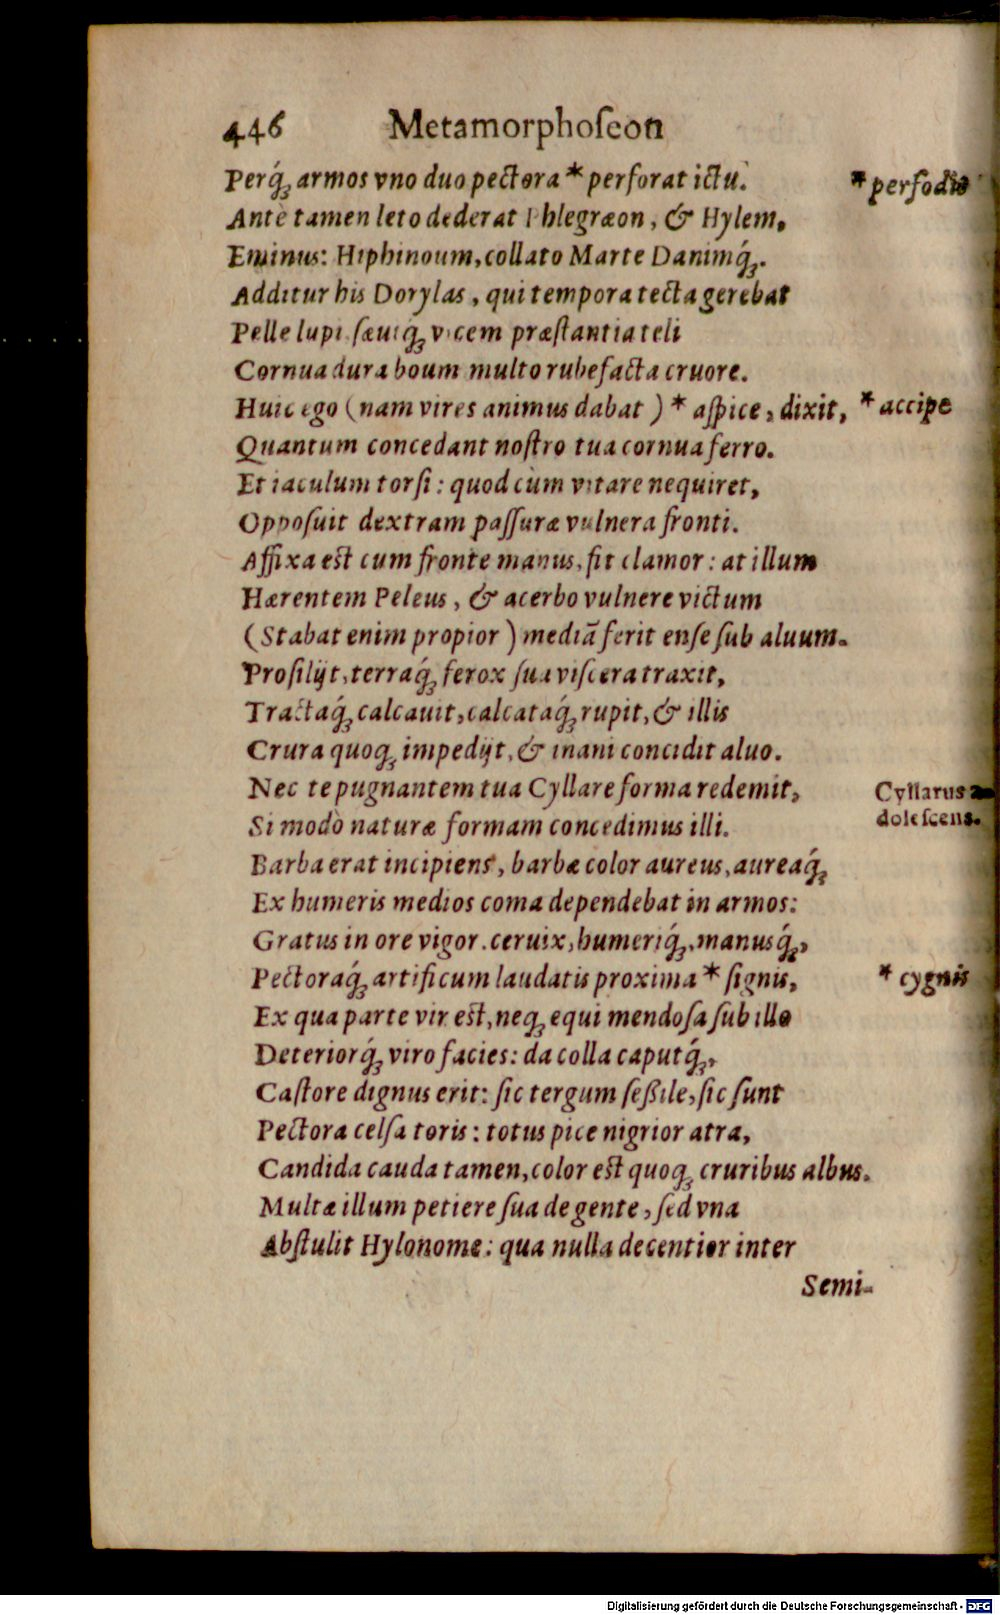 446 Metamorphoſeon
Perq́ꝫ armos vno duo pectora * perforat ictu. * perfodit
Antè tamen leto dederat Phlegræon, & Hylem,
Eminus: Hiphinoum, collato Marte Danimq́ꝫ.
Additur his Dorylas, qui tempora tecta gerebat
Pelle lupi, ſæuiq́ꝫ vicem præſtantia teli
Cornua dura boum multo rubefacta cruore.
Huic ego (nam vires animus dabat) * aſpice, dixit, * accipe
Quantum concedant noſtro tua cornua ferro.
Et iaculum torſi: quod cùm vitare nequiret,
Oppoſuit dextram paſſuræ vulnera fronti.
Affixa est cum fronte manus, fit clamor: at illum
Hærentem Peleus, & acerbo vulnere victum
(Stabat enim propior) mediã ferit enſe ſub aluum.
Proſilijt, terraq́ꝫ ferox ſua viſcera traxit,
Tractaq́ꝫ calcauit, calcataq́ꝫ rupit, & illis
Crura quoqꝫ impedijt, & inani concidit aluo.
Nec te pugnantem tua Cyllare forma redemit, Cyllarus a-
Si modò naturæ formam concedimus illi. doleſcens.
Barba erat incipiens, barbæ color aureus, aureaq́ꝫ
Ex humeris medios coma dependebat in armos:
Gratus in ore vigor. ceruix, humeriq́ꝫ, manusq́ꝫ,
Pectoraq́ꝫ artificum laudatis proxima * ſignis, * cygnis
Ex qua parte vir est, neqꝫ equi mendoſa ſub illo
Deteriorq́ꝫ viro facies: da colla caputq́ꝫ,
Caſtore dignus erit: ſic tergum ſeßile, ſic ſunt
Pectora celſa toris: totus pice nigrior atra,
Candida cauda tamen, color est quoqꝫ cruribus albus.
Multæ illum petiere ſua de gente, ſed vna
Abſtulit Hylonome: qua nulla decentior inter
Semi-
Digitalisierung gefördert durch die Deutsche Forschungsgemeinschaft - DFG